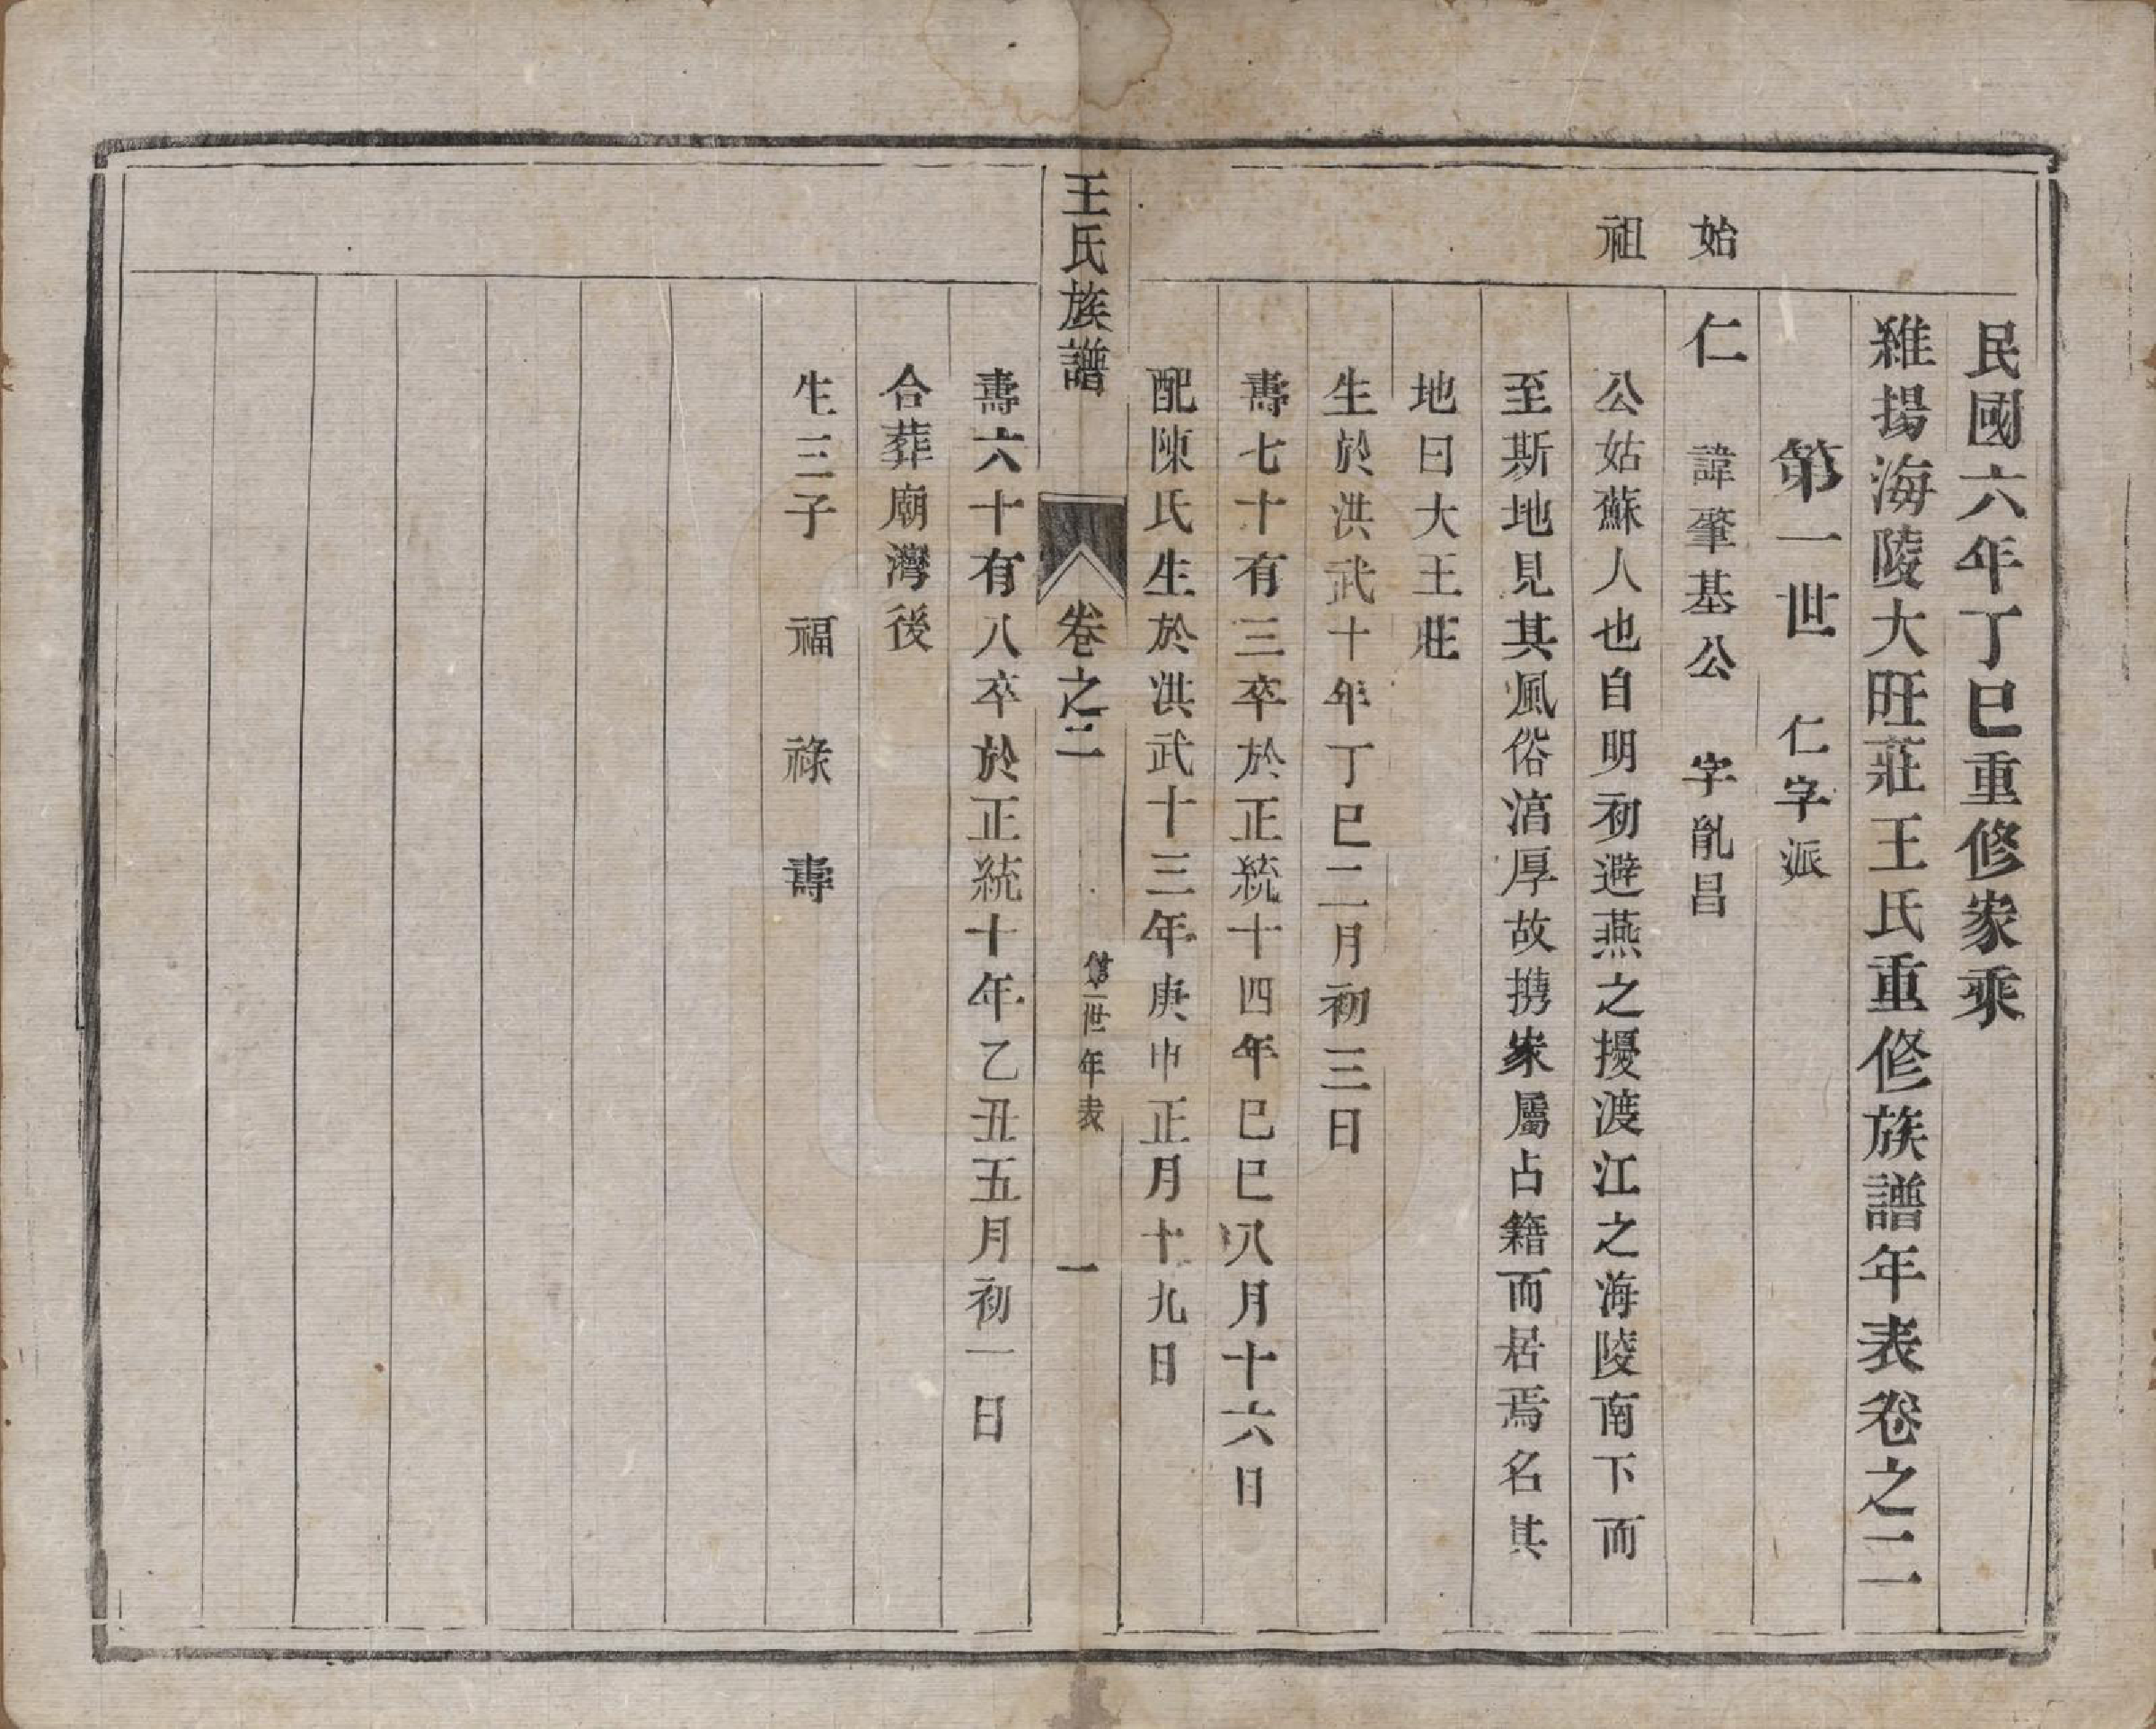 民國六年丁巳重修家乘
維揚海陵大旺莊王氏重修族譜年表卷之二
第一世　仁字派
始祖
仁　諱肇基公　字胤昌
公姑蘇人也自明初避燕之擾渡江之海陵南下而
至斯地見其風俗湻厚故携家屬占籍而居焉名其
地曰大王莊
生於洪武十年丁巳二月初三日
壽七十有三卒於正統十四年己巳八月十六日
配陳氏生於洪武十三年庚申正月十九日
王氏族譜　卷之二　第一世年表　一
壽六十有八卒於正統十年乙丑五月初一日
合葬廟灣後
生三子　福　祿　壽